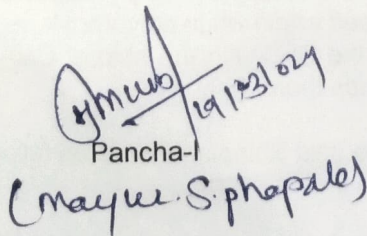 19/03/024
Pancha-I
(Mayur.S.phapale)